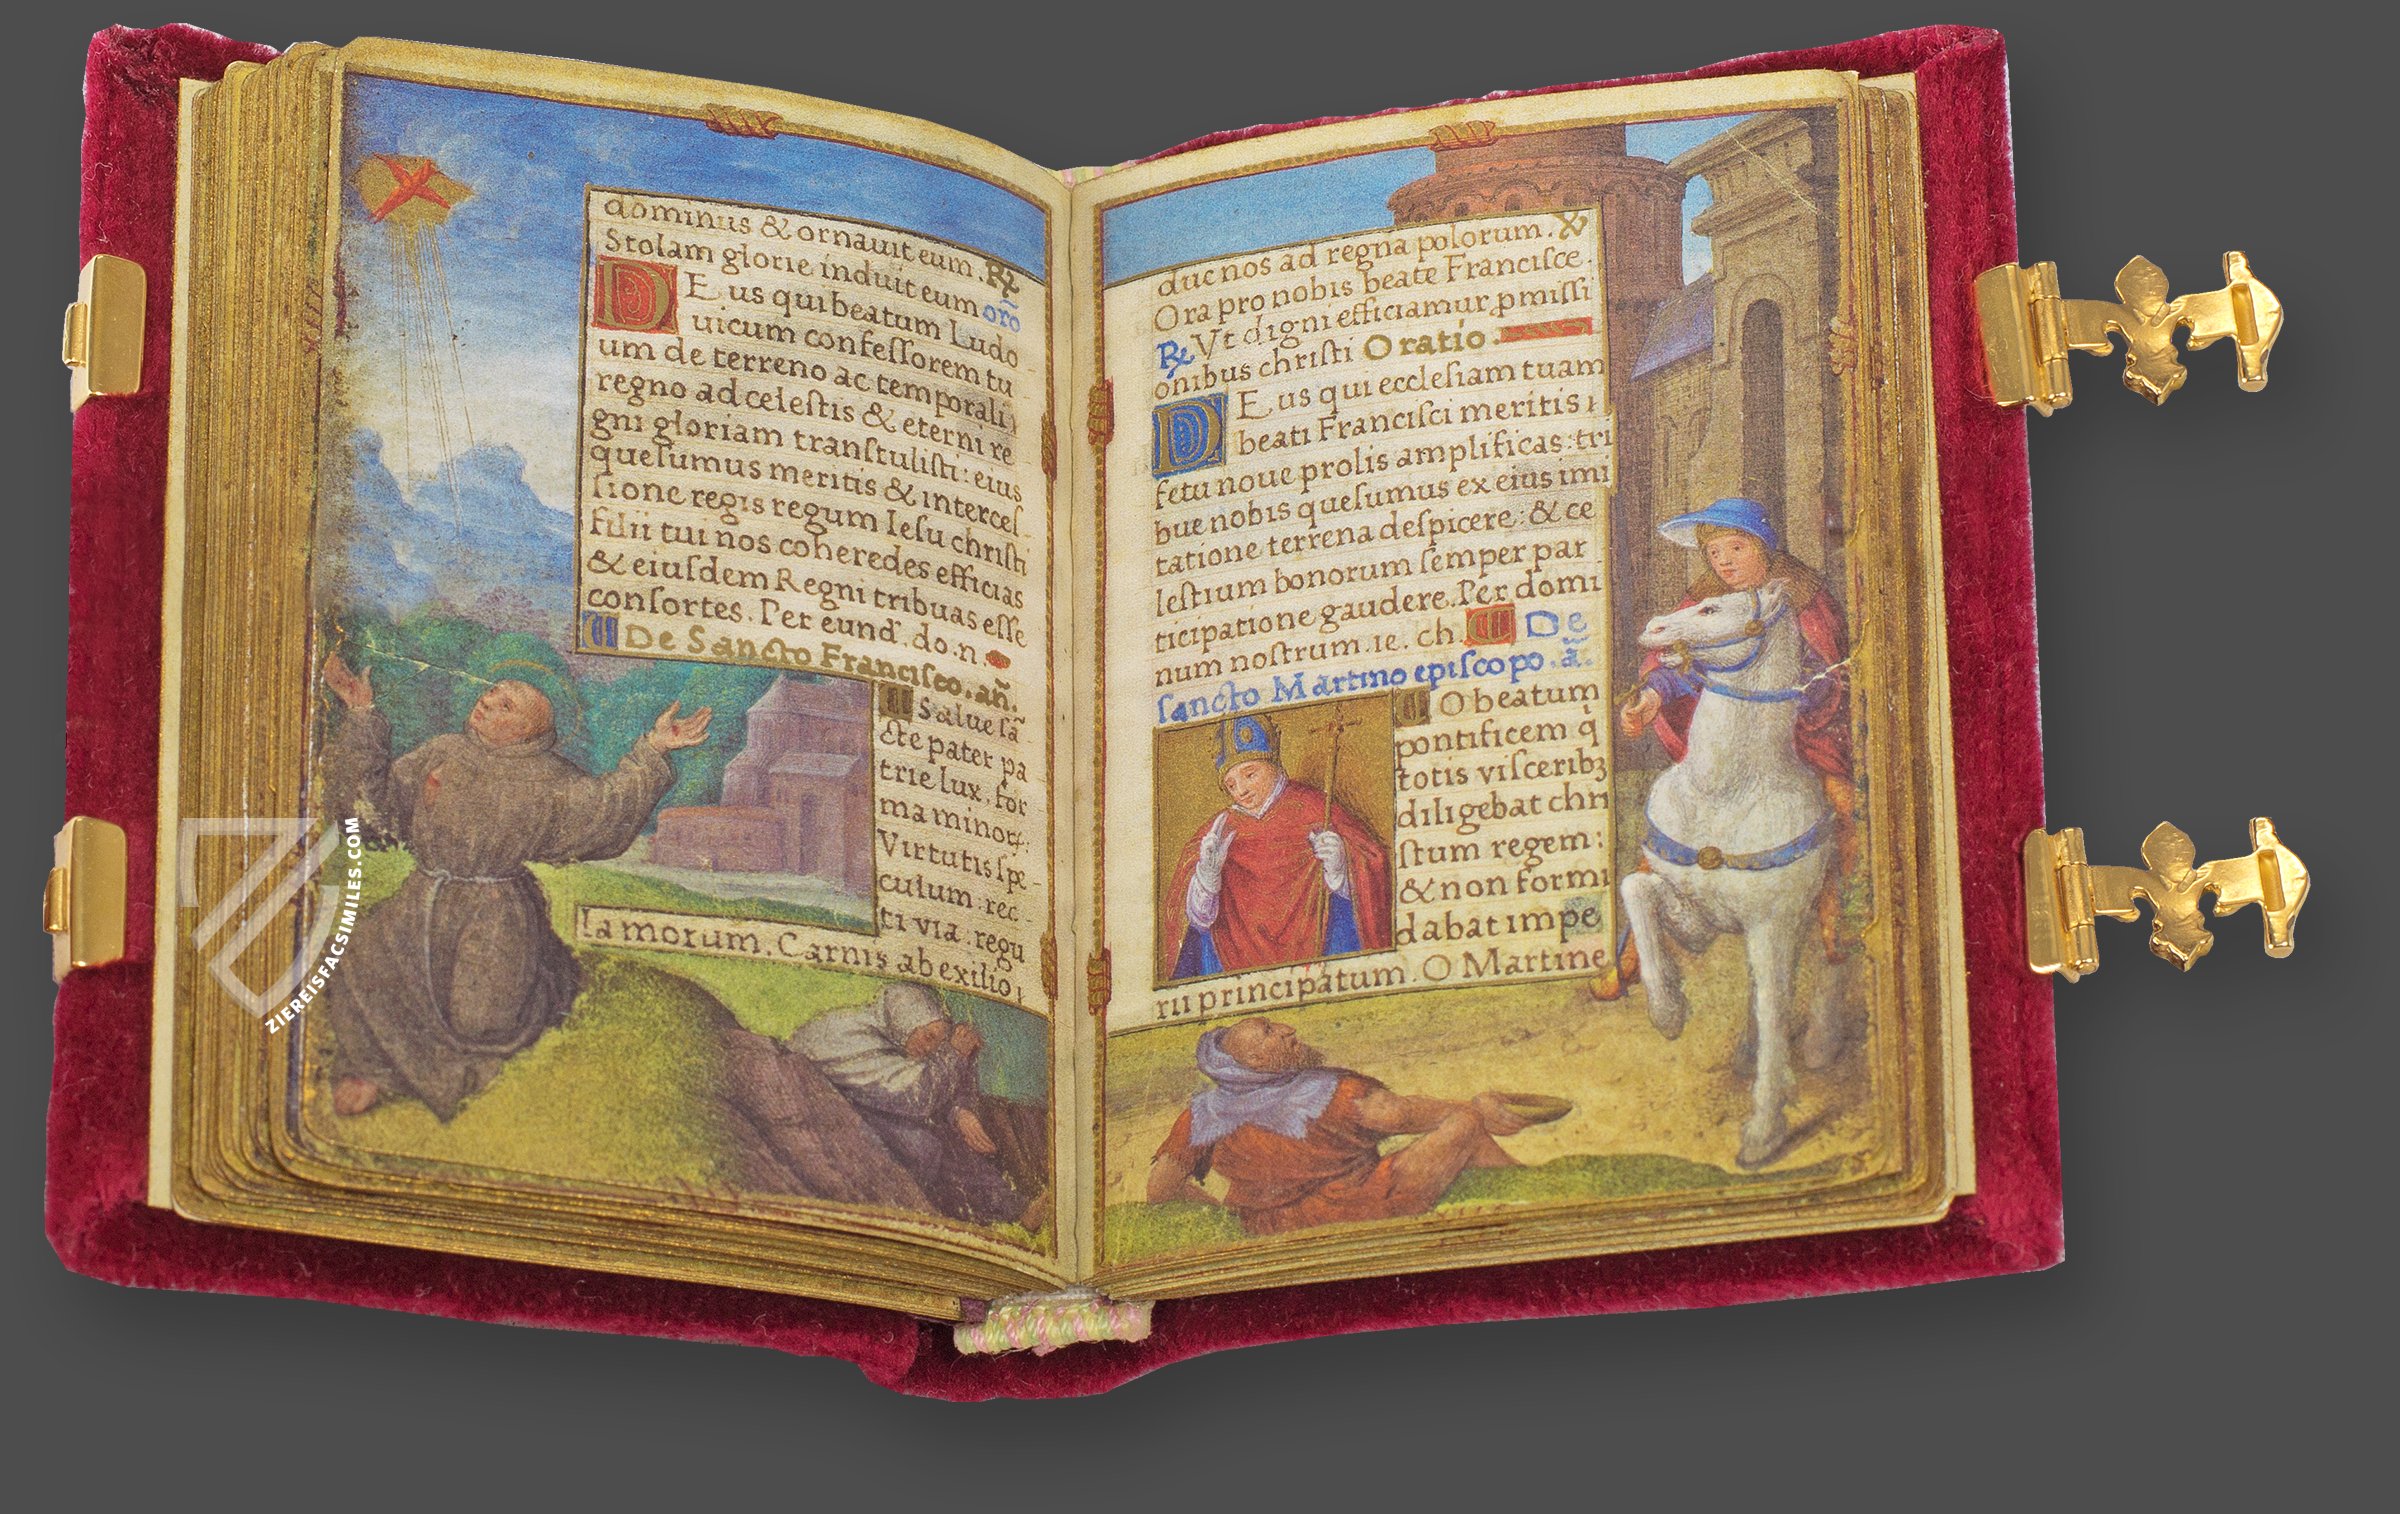 dominus & ornauit eum. ℟
Stolam glorie induit eum orõ
DEus qui beatum Ludo
uicum confeſſorem tu
um de terreno ac temporali
regno ad celeſtis & eterni re
gni gloriam tranſtuliſti: eius
queſumus meritis & interceſ
ſione regis regum Ieſu chriſti
filii tui nos coheredes efficias
& eiuſdem Regni tribuas eſſe
conſortes. Per eund̃. do. n.
De Sancto Franciſco. añ.
Salue ſã
cte pater pa
trie lux. for
ma minoꝝ:
Virtutis ſpe
culum. rec
ti via. regu
la morum. Carnis ab exilio
duc nos ad regna polorum. ℣
Ora pro nobis beate Franciſce.
℟ Vt digni efficiamur ꝓmiſſi
onibus chriſti Oratio.
DEus qui eccleſiam tuam
beati Franciſci meritis
fetu noue prolis amplificas: tri
bue nobis queſumus ex eius imi
tatione terrena deſpicere: & ce
leſtium bonorum ſemper par
ticipatione gaudere. Per domi
num noſtrum. ie. ch. De
ſancto Martino epiſcopo. ã.
O beatum
pontificem q̇
totis viſceribꝫ
diligebat chri
ſtum regem:
& non formi
dabat impe
rii principatum. O Martine
ZIEREISFACSIMILES.COM